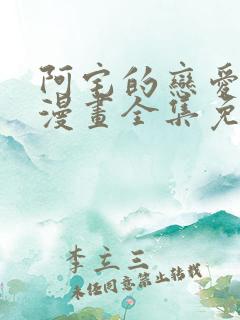 阿宅的戀愛
漫畫全集免
李立三
未经同意禁止转载